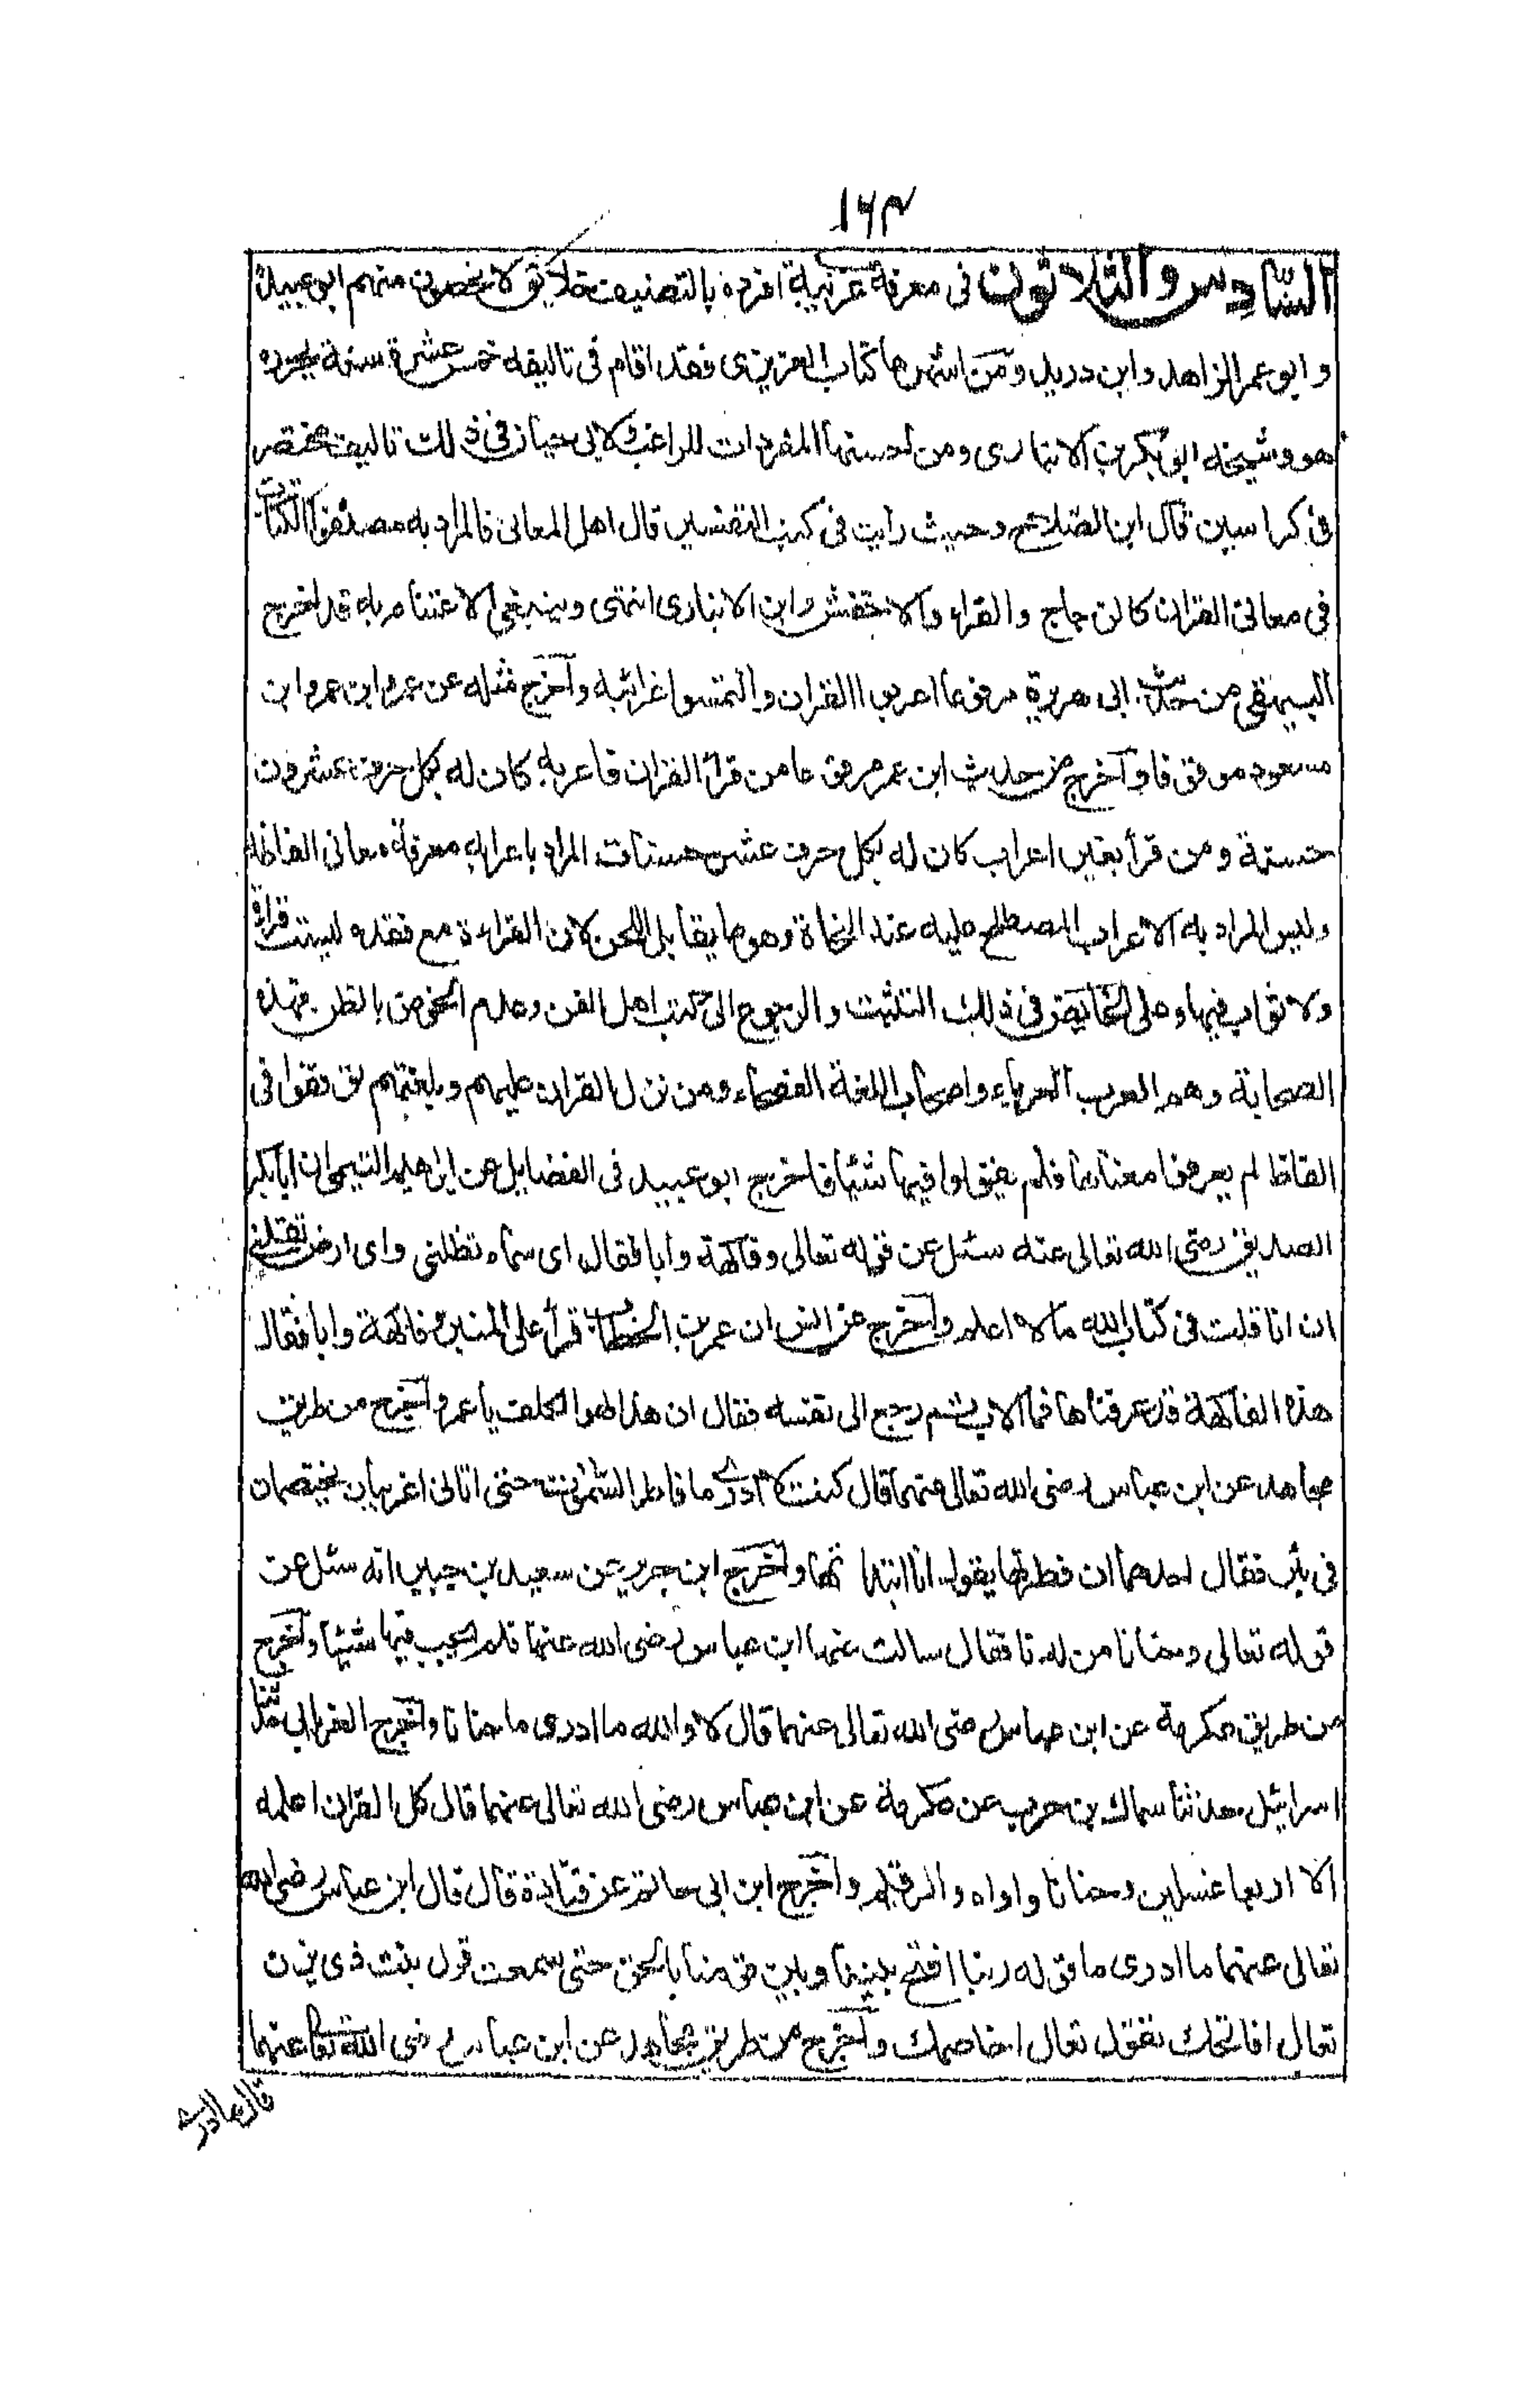 ۱۶۳
السادس والثلاثون فى معرفة غريبة افرده بالتصنيف خلايق لا يحصون منهم ابو عبيدة
و ابو عمر الزاهد وابن دريد ومن اشهرها كتاب العزيزى فقد اقام فى تاليفه خمس عشرة سنة يحرره
هو وشيخه ابو بكر بن الانبارى ومن احسنها المفردات للراغب ولابى حيان فى ذلك تاليف مختصر
فى كراسين قال ابن الصلاح وحيث رايت فى كتب التفسير قال اهل المعانى فالمراد به مصنفوا الكتب
فى معانى القران كالزجاج والفراء والاخفش وابن الانبارى انتهى وينبغى الاعتناء به فقد اخرج
البيهقى من حديث ابى هريرة مرفوعا اعربوا القران والتمسوا غرائبه واخرج مثله عن عمر وابن عمر وابن
مسعود موقوفا واخرج من حديث ابن عمر مرفوعا من قرأ القران فاعربه كان له بكل حرف عشرون
حسنة ومن قرأ بغير اعراب كان له بكل حرف عشر حسنات المراد باعرابه معرفة معانى الفاظه
وليس المراد به الاعراب المصطلح عليه عند النحاة وهو ما يقابل اللحن لان القراءة مع فقده ليست قراءة
ولا ثواب فيها وعلى الخايض فى ذلك التثبت والرجوع الى كتب اهل الفن وعدم الخوض بالظن فهذه
الصحابة وهم العرب العرباء واصحاب اللغة الفصحاء ومن نزل القران عليهم وبلغتهم توقفوا فى
الفاظ لم يعرفوا معناها فلم يقولوا فيها شيئا فاخرج ابو عبيد فى الفضايل عن ابراهيم التيمى ان ابا بكر
الصديق رضى الله تعالى عنه سئل عن قوله تعالى وفاكهة وابا فقال اى سماء تظلنى واى ارض تقلنى
ان انا قلت فى كتاب الله ما لا اعلم واخرج عن انس ان عمر بن الخطاب قرأ على المنبر وفاكهة وابا فقال
هذه الفاكهة قد عرفناها فما الاب ثم رجع الى نفسه فقال ان هذا لهو الكلف يا عمر واخرج من طريق
مجاهد عن ابن عباس رضى الله تعالى عنهما قال كنت لا ادرى ما فاطر السموات حتى اتانى اعرابيان يختصمان
فى بئر فقال احدهما ان فطرتها يقول انا ابتدأتها واخرج ابن جرير عن سعيد بن جبير انه سئل عن
قوله تعالى وحنانا من لدنا فقال سالت عنها ابن عباس رضى الله عنهما فلم يجب فيها شيئا واخرج
من طريق عكرمة عن ابن عباس رضى الله تعالى عنهما قال لا والله ما ادرى ما حنانا واخرج الفريابى حدثنا
اسرائيل حدثنا سماك بن حرب عن عكرمة عن ابن عباس رضى الله تعالى عنهما قال كل القران اعلمه
الا اربعا غسلين وحنانا واواه والرقيم واخرج ابن ابى حاتم عن قتادة قال قال ابن عباس رضى الله
تعالى عنهما ما ادرى ما قوله ربنا افتح بيننا وبين قومنا بالحق حتى سمعت قول بنت ذى يزن
تعال افاتحك تقول تعال اخاصمك واخرج من طريق مجاهد عن ابن عباس رضى الله تعالى عنهما
قال ما ادرى